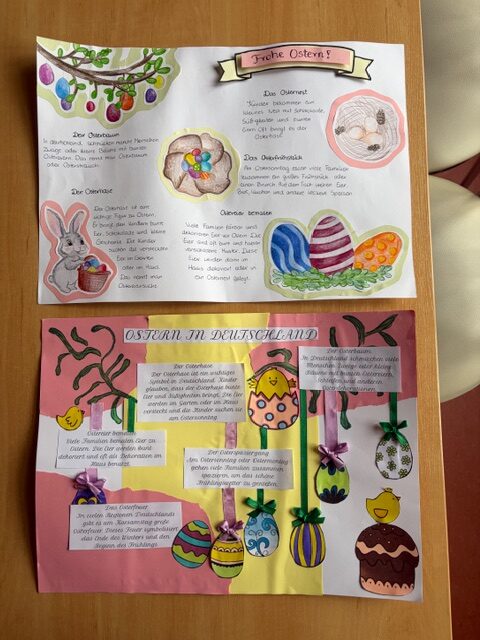 Frohe Ostern!
Der Osterbaum
In Deutschland schmücken manche Menschen
Zweige oder kleine Bäume mit bunten
Ostereiern. Das nennt man Osterbaum
oder Osterstrauch.
Das Osternest
Kinder bekommen ein
kleines Nest mit Schokolade,
Süßigkeiten und bunten
Eiern. Oft bringt es der
Osterhase.
Das Osterfrühstück
Am Ostersonntag essen viele Familien
zusammen ein großes Frühstück oder
einen Brunch. Auf dem Tisch stehen Eier,
Brot, Kuchen und andere leckere Speisen.
Der Osterhase
Der Osterhase ist eine
wichtige Figur zu Ostern.
Er bringt den Kindern bunte
Eier, Schokolade und kleine
Geschenke. Die Kinder
suchen die versteckten
Eier im Garten
oder im Haus.
Das nennt man
Ostereiersuche.
Ostereier bemalen
Viele Familien färben und
dekorieren Eier vor Ostern. Die
Eier sind oft bunt und haben
verschiedene Muster. Diese
Eier werden dann im
Haus dekoriert oder in
ein Osternest gelegt.
OSTERN IN DEUTSCHLAND
Der Osterhase
Der Osterhase ist ein wichtiges
Symbol in Deutschland. Kinder
glauben, dass der Osterhase bunte
Eier und Süßigkeiten bringt. Die Eier
werden im Garten oder im Haus
versteckt und die Kinder suchen sie
am Ostersonntag.
Der Osterbaum
In Deutschland schmücken viele
Menschen Zweige oder kleine
Bäume mit bunten Ostereiern,
Schleifen und anderen
Osterdekorationen.
Ostereier bemalen
Viele Familien bemalen Eier zu
Ostern. Die Eier werden bunt
dekoriert und oft als Dekoration im
Haus benutzt.
Der Osterspaziergang
Am Ostersonntag oder Ostermontag
gehen viele Familien zusammen
spazieren, um das schöne
Frühlingswetter zu genießen.
Das Osterfeuer
In vielen Regionen Deutschlands
gibt es am Karsamstag große
Osterfeuer. Dieses Feuer symbolisiert
das Ende des Winters und den
Beginn des Frühlings.